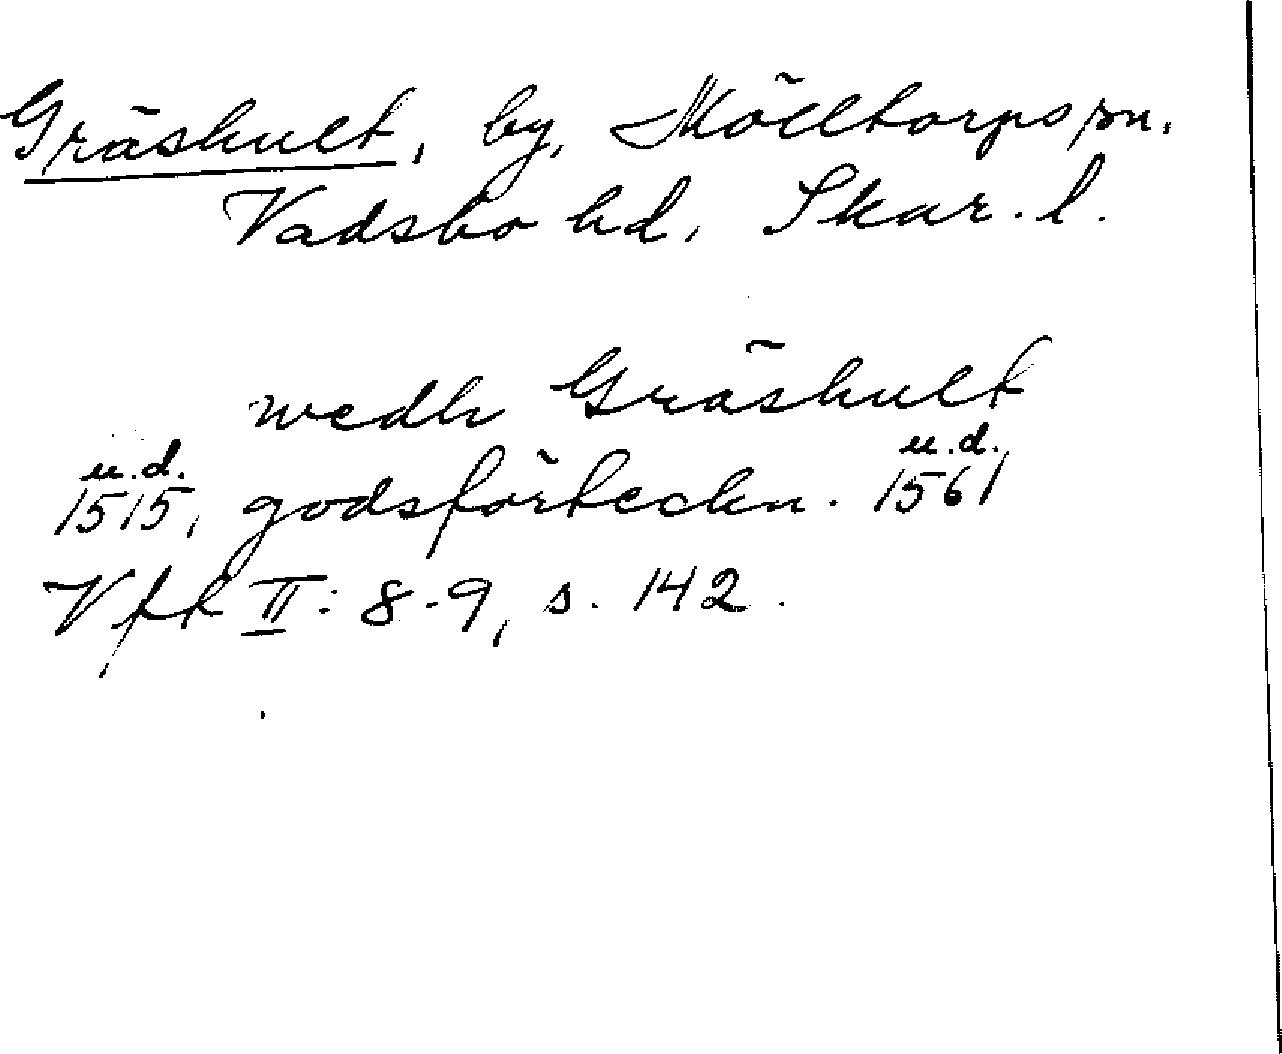 Gräshult, by, Mölltorps sn.
Vadsbo hd, Skar. l.
wedh Gräshult
u.d. u.d.
1515, godsförteckn. 1561
Vfk II: 8-9, s. 142.